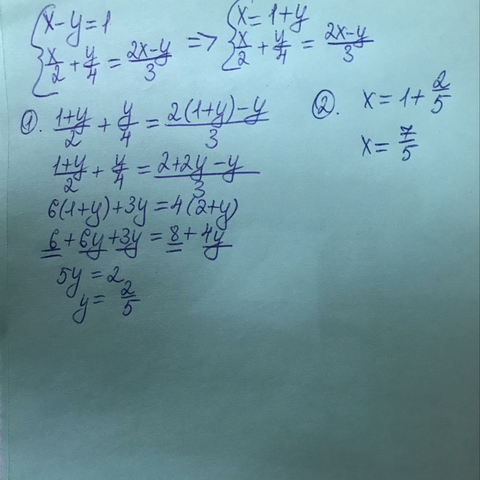 {x-y=1
{x/2+y/4=(2x-y)/3 => {x=1+y
{x/2+y/4=(2x-y)/3
①. (1+y)/2+y/4=(2(1+y)-y)/3
(1+y)/2+y/4=(2+2y-y)/3
6(1+y)+3y=4(2+y)
6+6y+3y=8+4y
5y=2
y=2/5
②. x=1+2/5
x=7/5